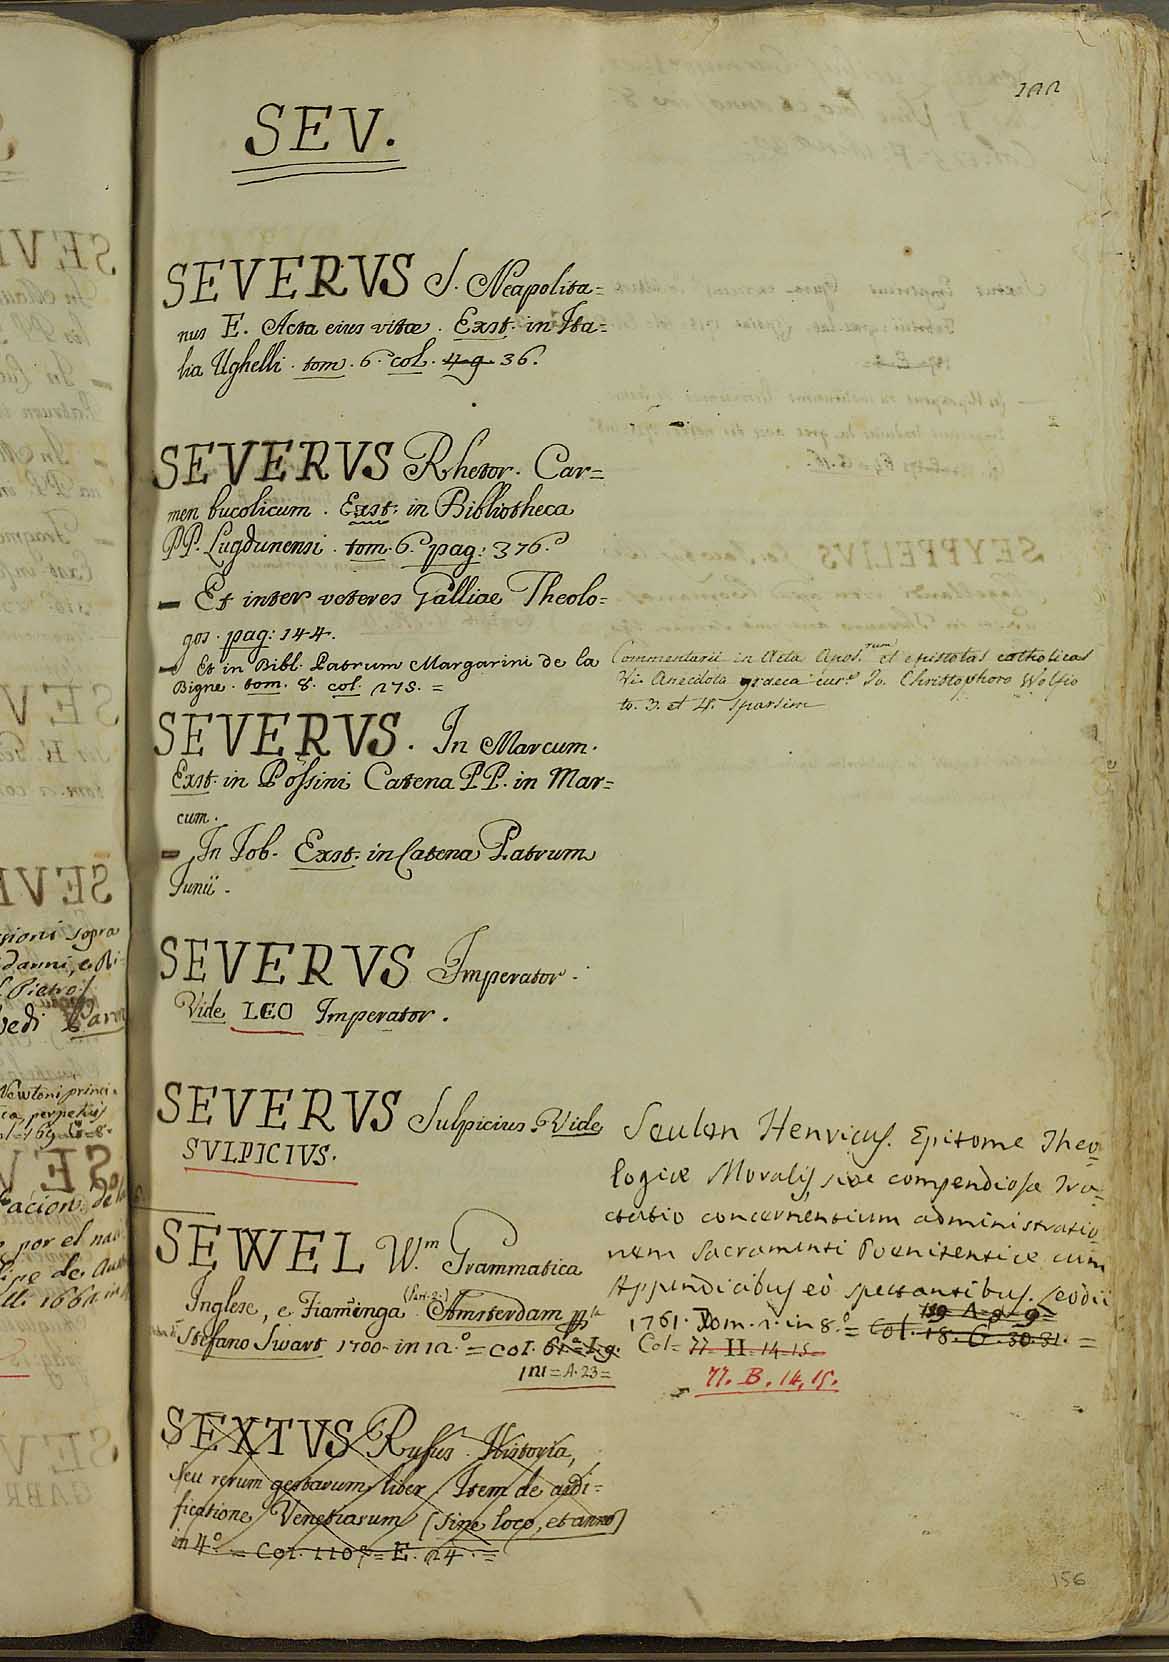 SEV.
SEVERVS S. Neapolita=
nus E. Acta eius vitæ. Exst. in Ita=
lia Ughelli. tom. 6. col. 49 36.
SEVERVS Rhetor. Car=
men bucolicum. Exst. in Bibliotheca
PP. Lugdunensi. tom. 6. pag: 376.
— Et inter veteres Galliae Theolo=
gos. pag: 144.
— Et in Bibl. Patrum Margarini de la
Bigne. tom. 8. col. 175. =
SEVERVS. In Marcum.
Exst. in Possini Catena PP. in Mar=
cum.
— In Job. Exst. in Catena Patrum
Junii.
SEVERVS Imperator.
Vide LEO Imperator.
SEVERVS Sulpicius. Vide
SVLPICIVS.
SEWEL W.m Grammatica
Inglese, e Fiaminga Amsterdam
Stefano Swart 1700. in 12.° = Col.
= A. 23 =
SEXTVS Ruffus. Historia,
seu rerum gestarum liber. Item de aedi=
ficatione Venetiarum (sine loco, et anno)
in 4.° = Col. 110 = E. 24. =
Commentarii in Acta Apos.rum et epistolas catholicas
Vis Anecdota graeca cur.e Jo. Christophoro Wolfio
to. 3. et 4. sparsim
Seulen Henricus. Epitome Theo=
logiæ Moralis, sive compendiosa Tra=
ctatio concernentium administratio
nem Sacramenti Poenitentiæ cum
Appendicibus eò spectantibus.
119 A. 9. 9=
1761. Tom. 2. in 8.° = Col. 18. G. 30.31. =
Col = 77. H. 14.15.
77. B. 14, 15.
156